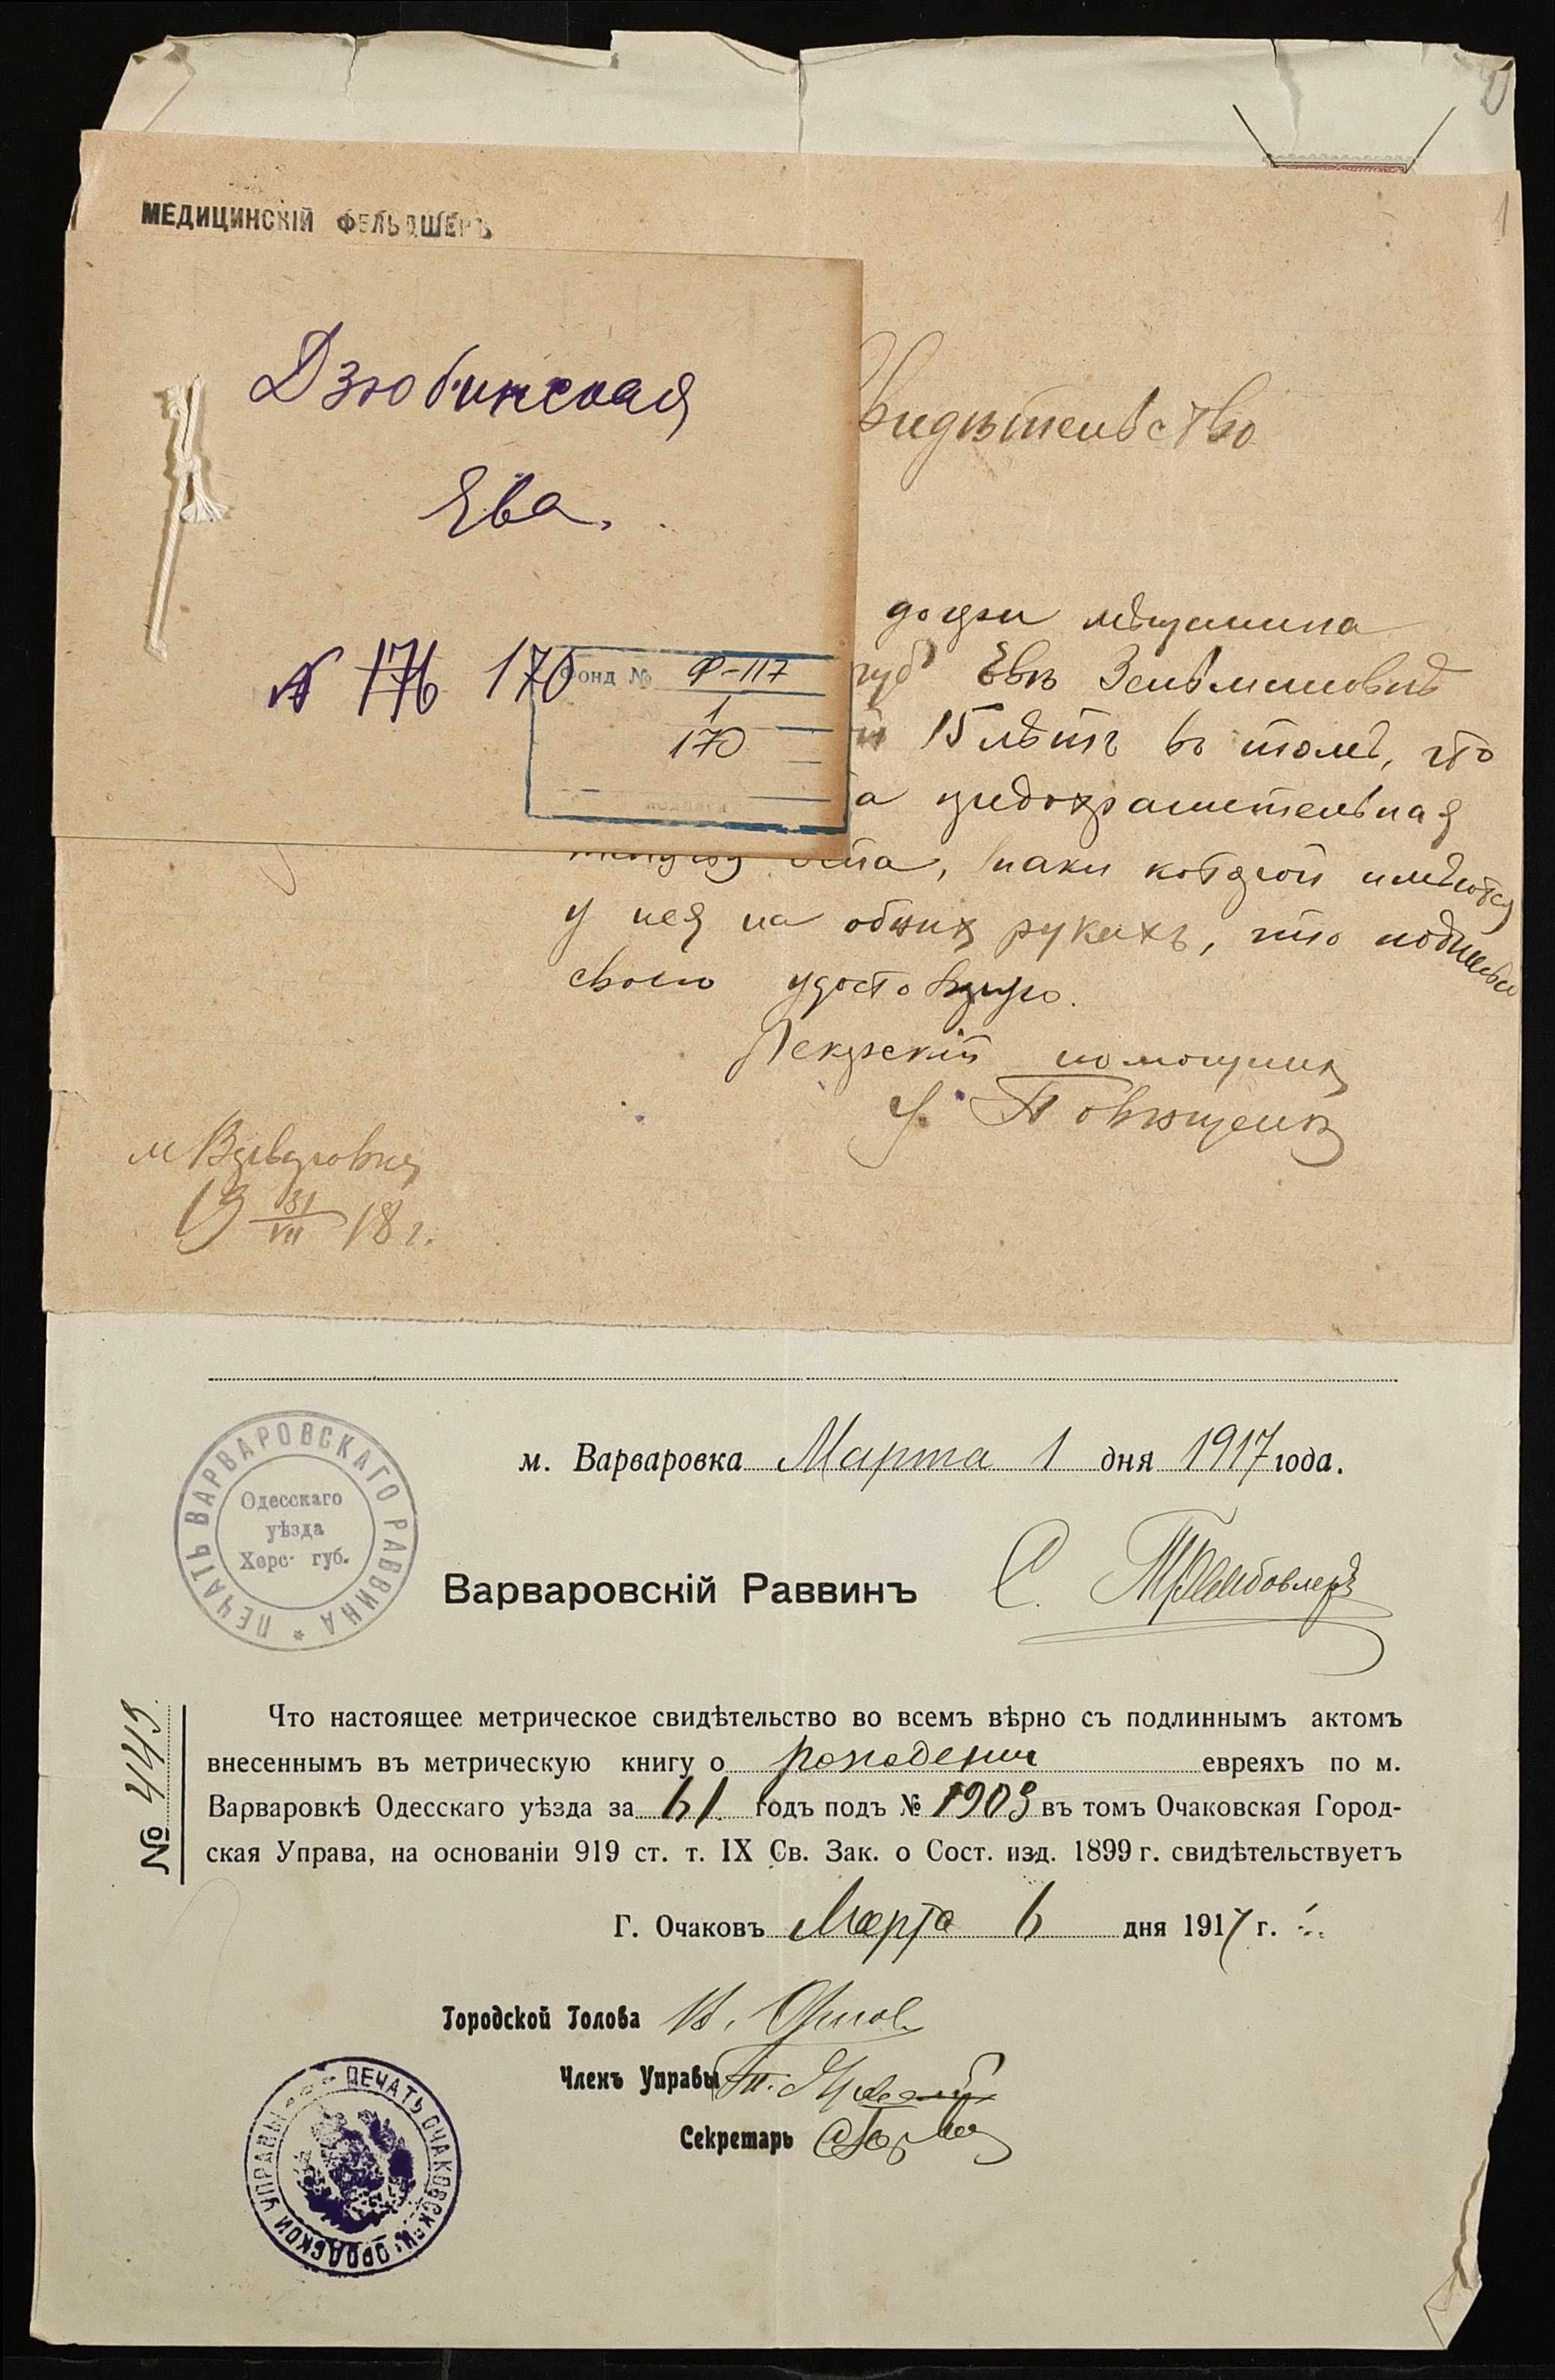 МЕДИЦИНСКІЙ ФЕЛЬДШЕРЪ
1
Дзюбинская
Ева.
№ 176 170
Фонд № Ф-117
1
170
видѣтельство
дочери мѣщанина
губ Евѣ Зельмановнѣ
15 лѣтъ въ томъ, что
а предохранительная
оспа, знаки которой имѣются
у нея на обѣихъ рукахъ, что подписью
своею удостовѣряю.
Лекарскій помощникъ
м Варваровка
19 31/VII 18 г.
м. Варваровка Марта 1 дня 1917 года.
ПЕЧАТЬ ВАРВАРОВСКАГО РАВВИНА *
Одесскаго
уѣзда
Херс. губ.
Варваровскій Раввинъ С.
№ 443.
Что настоящее метрическое свидѣтельство во всемъ вѣрно съ подлиннымъ актомъ
внесеннымъ въ метрическую книгу о рожденіи евреяхъ по м.
Варваровкѣ Одесскаго уѣзда за 61 годъ подъ № 1903 въ томъ Очаковская Город-
ская Управа, на основаніи 919 ст. т. IX Св. Зак. о Сост. изд. 1899 г. свидѣтельствуетъ
Г. Очаковъ Марта 6 дня 1917 г.
Городской Голова
Членъ Управы
Секретарь
ПЕЧАТЬ ОЧАКОВСКОЙ ГОРОДСКОЙ УПРАВЫ